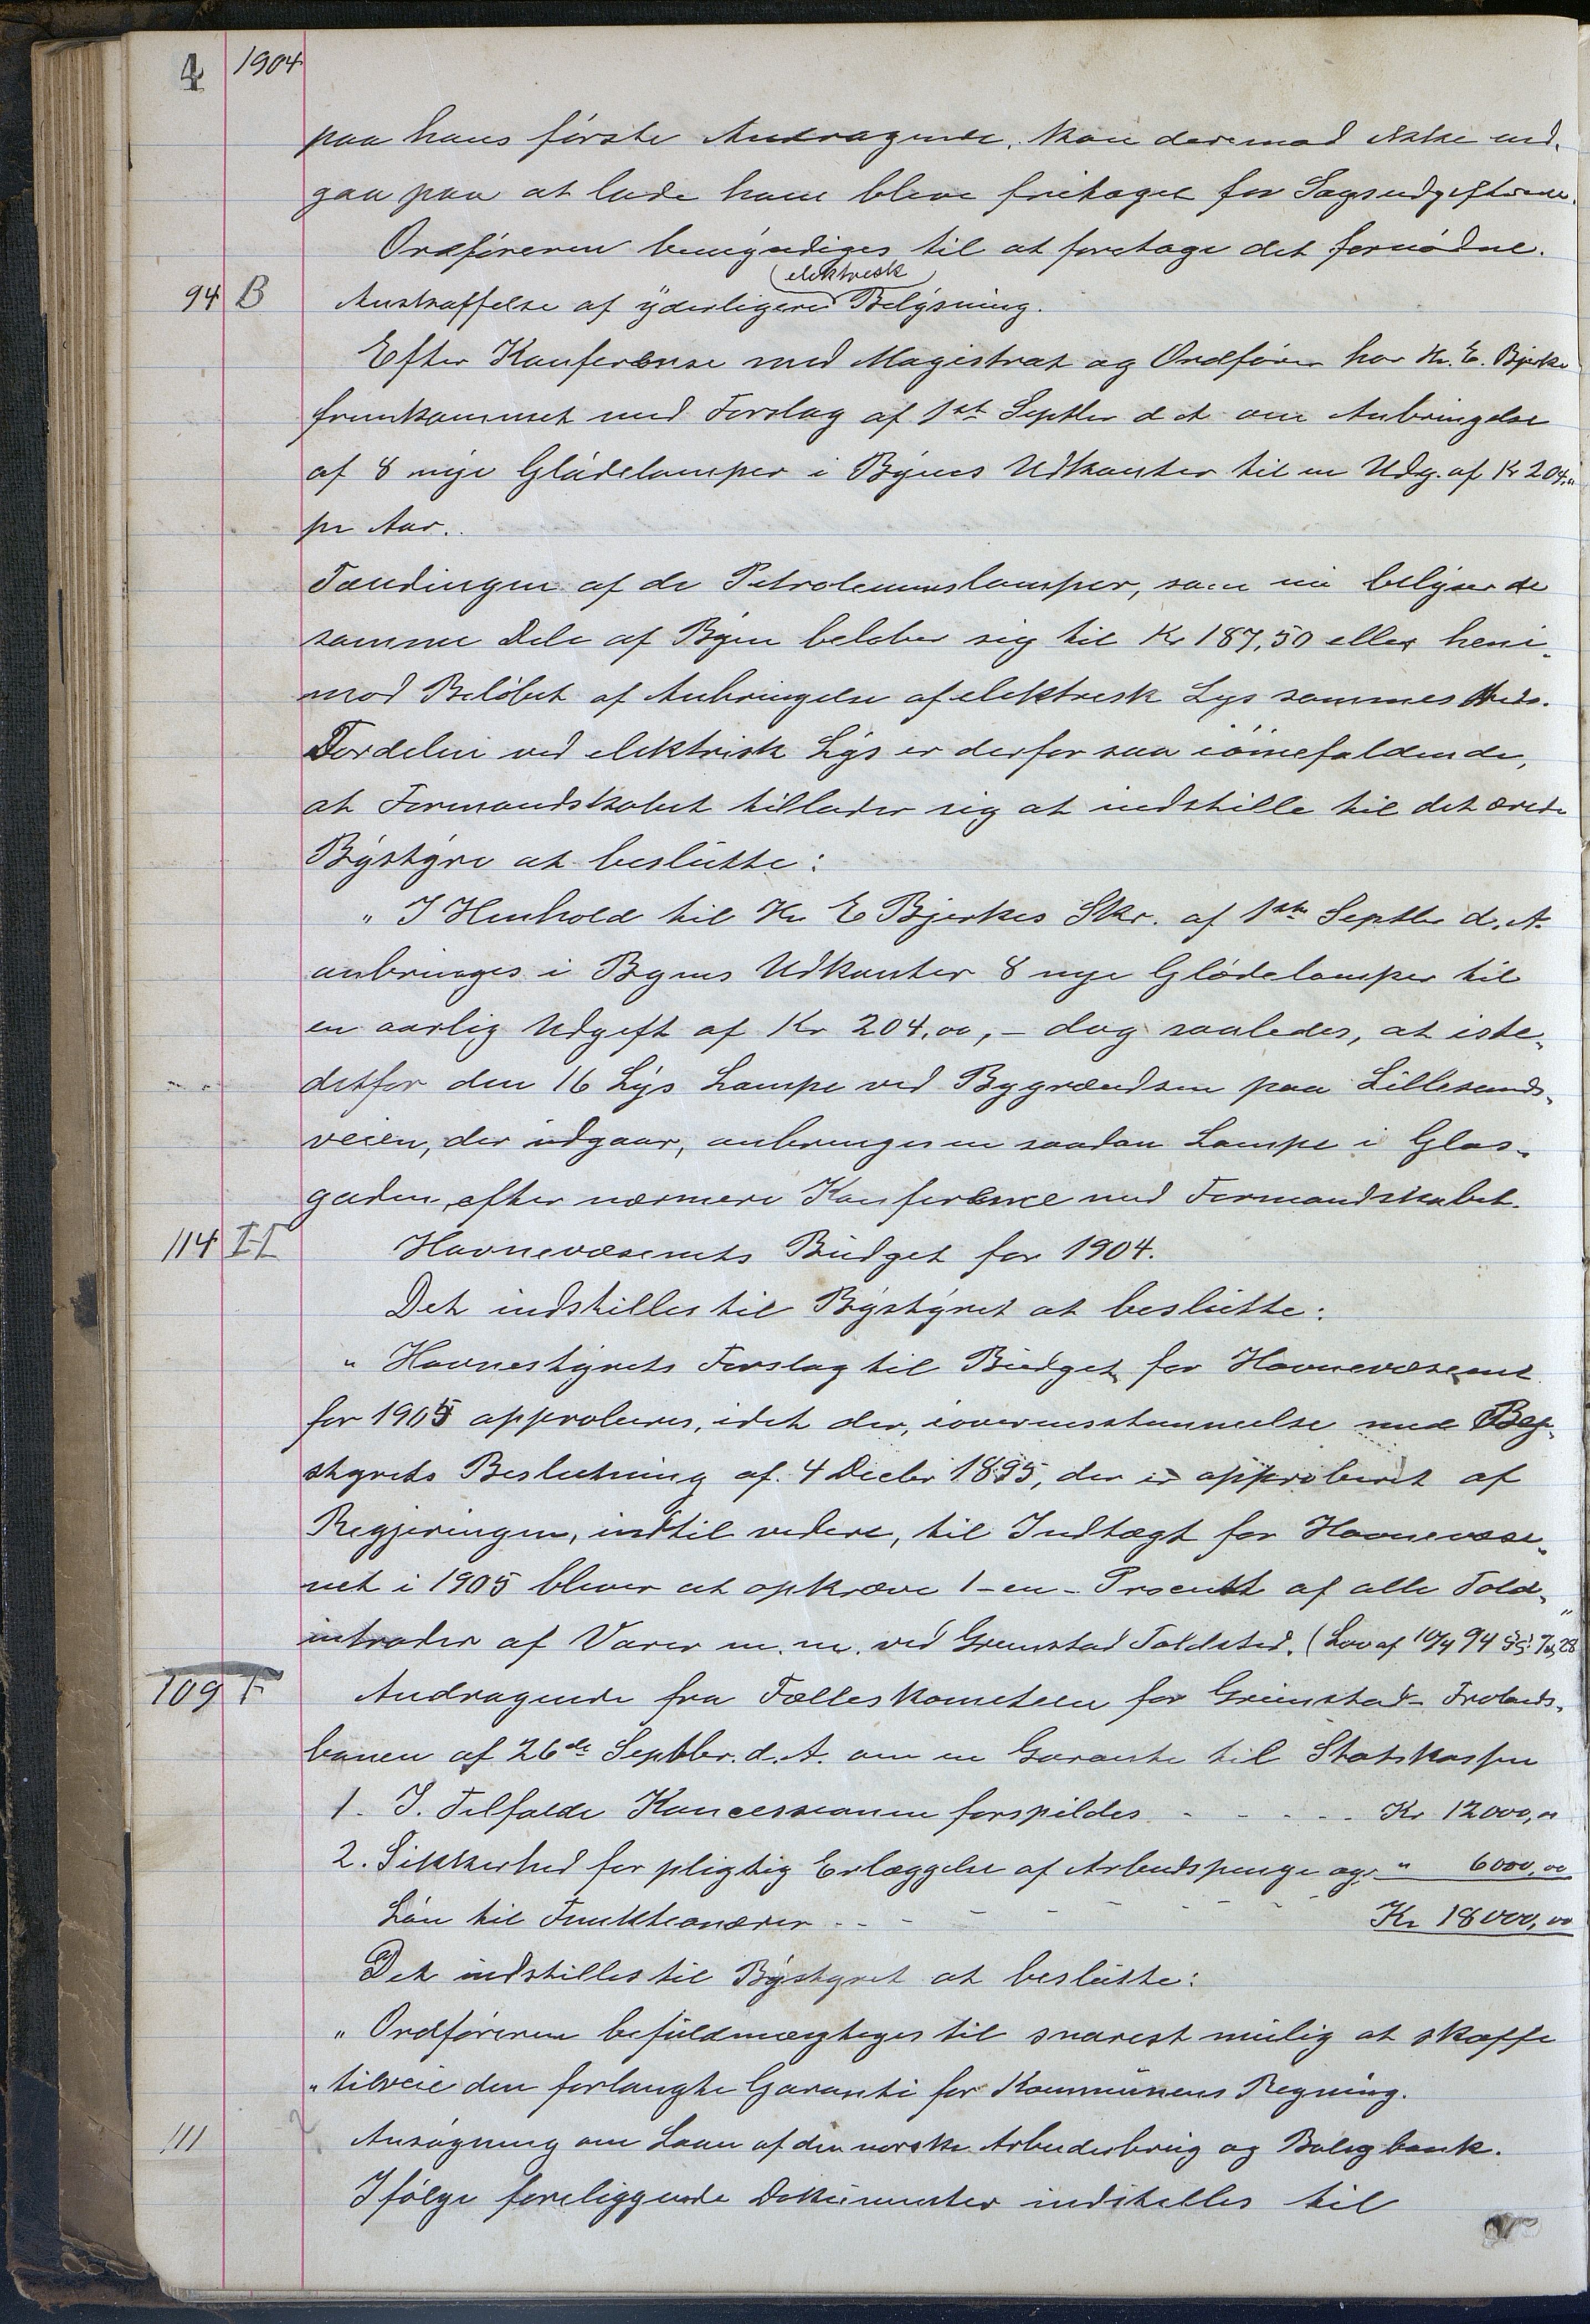 4 1904
paa hans første Andragende, kan derimod ikke ind-
gaa paa at lade ham bleve fritaget for Sagsudgifterne.
Ordføreren bemyndiges til at foretage det fornødne.
elektrisk
94 B Anskaffelse af yderligere Belysning.
Efter Konferense med Magistrat og Ordfører har Hr. E. Bjerke
fremkommet med Forslag af 1ste Septbr d A om Anbringelse
af 8 nye Glødelamper i Byens Udkanter til en Udg. af Kr 204,"
pr Aar.
Tændingen af de Petroleumslamper, som nu belyser de
samme Dele af Byen beløber sig til Kr 187,50 eller heni-
mod Beløbet af Anbringelse af elektrisk Lys sammesteds.
Fordelen ved elektrisk Lys er derfor saa iøinefaldende,
at Formandskabet tillader sig at indstille til det ærede
Bystyre at beslutte:
" I Henhold til Hr E Bjerkes Skr. af 1ste Septbr d. A.
anbringes i Byens Udkanter 8 nye Glødelamper til
en aarlig Udgift af Kr 204,00, - dog saaledes, at iste-
detfor den 16 Lys Lampe ved Bygrændsen paa Lillesands-
veien, der udgaar, anbringes en saadan Lampe i Glas-
gaden, efter nærmere Konferense med Formandskabet.
114 H Havnevæsenets Budget for 1904.
Det indstilles til Bystyret at beslutte:
" Havnestyrets Forslag til Budget for Havnevæsenet
for 1905 approberes, idet der, i overensstemmelse med By-
styrets Beslutning af 4 Decbr 1895, der er approberet af
Regjeringen, indtil videre, til Indtægt for Havnevæse-
net i 1905 bliver at opkræve 1 - en - Procent af alle Told-
intrader af Varer m. m. ved Grimstad Toldsted. (Lov af 10/7 94 §§ 7 28"
109 F Andragende fra Fælleskomiteen for Grimstad-Frolands-
banen af 26de Septbr. d. A. om en Garanti til Statskassen
1. I Tilfælde Koncessionen forspildes - - - - Kr 12000,"
2. Sikkerhed for pligtig Erlæggelse af Arbeidspenge og " 6000,00
Løn til Funktionærer - - - - - - - Kr 18000,00
Det indstilles til Bystyret at beslutte:
" Ordføreren befuldmægtiges til snarest mulig at skaffe
" tilveie den forlangte Garanti for Kommunens Regning.
111 Ansøgning om Laan af den norske Arbeiderbrug og Boligbank.
Ifølge foreliggende Dokumenter indstilles til